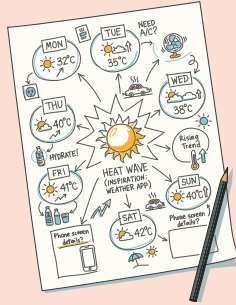 MON
32°C
TUE
35°C
NEED
A/C?
WED
38°C
THU
40°C
HYDRATE!
Rising
Trend
FRI
41°C
HEAT WAVE
(INSPIRATION:
WEATHER APP)
SUN
40°C
SAT
42°C
Phone screen
details?
Phone screen
details?